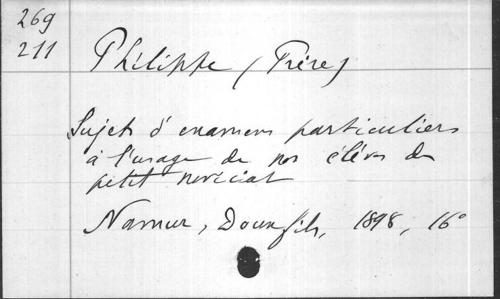 269
211
Philippe (Frère)
Sujets d'examens particuliers
à l'usage de nos élèves du
petit noviciat
Namur, Doux fils, 1898, 16°